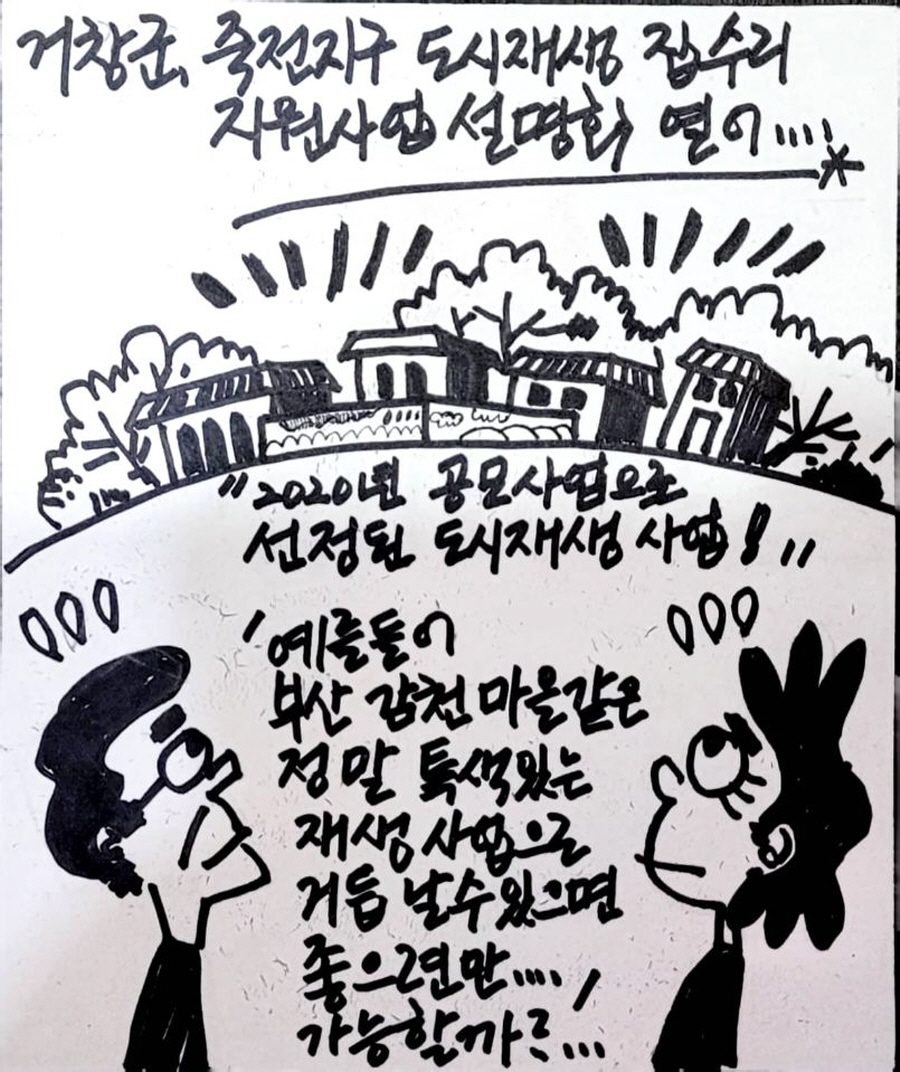 거창군, 죽전지구 도시재생 집수리
지원사업 설명회 열어....
"2020년 공모사업으로
선정된 도시재생 사업!"
'예를들어
부산 감천마을같은
정말 특색있는
재생사업으로
거듭 날수있으면
좋으련만....'
가능할까?...